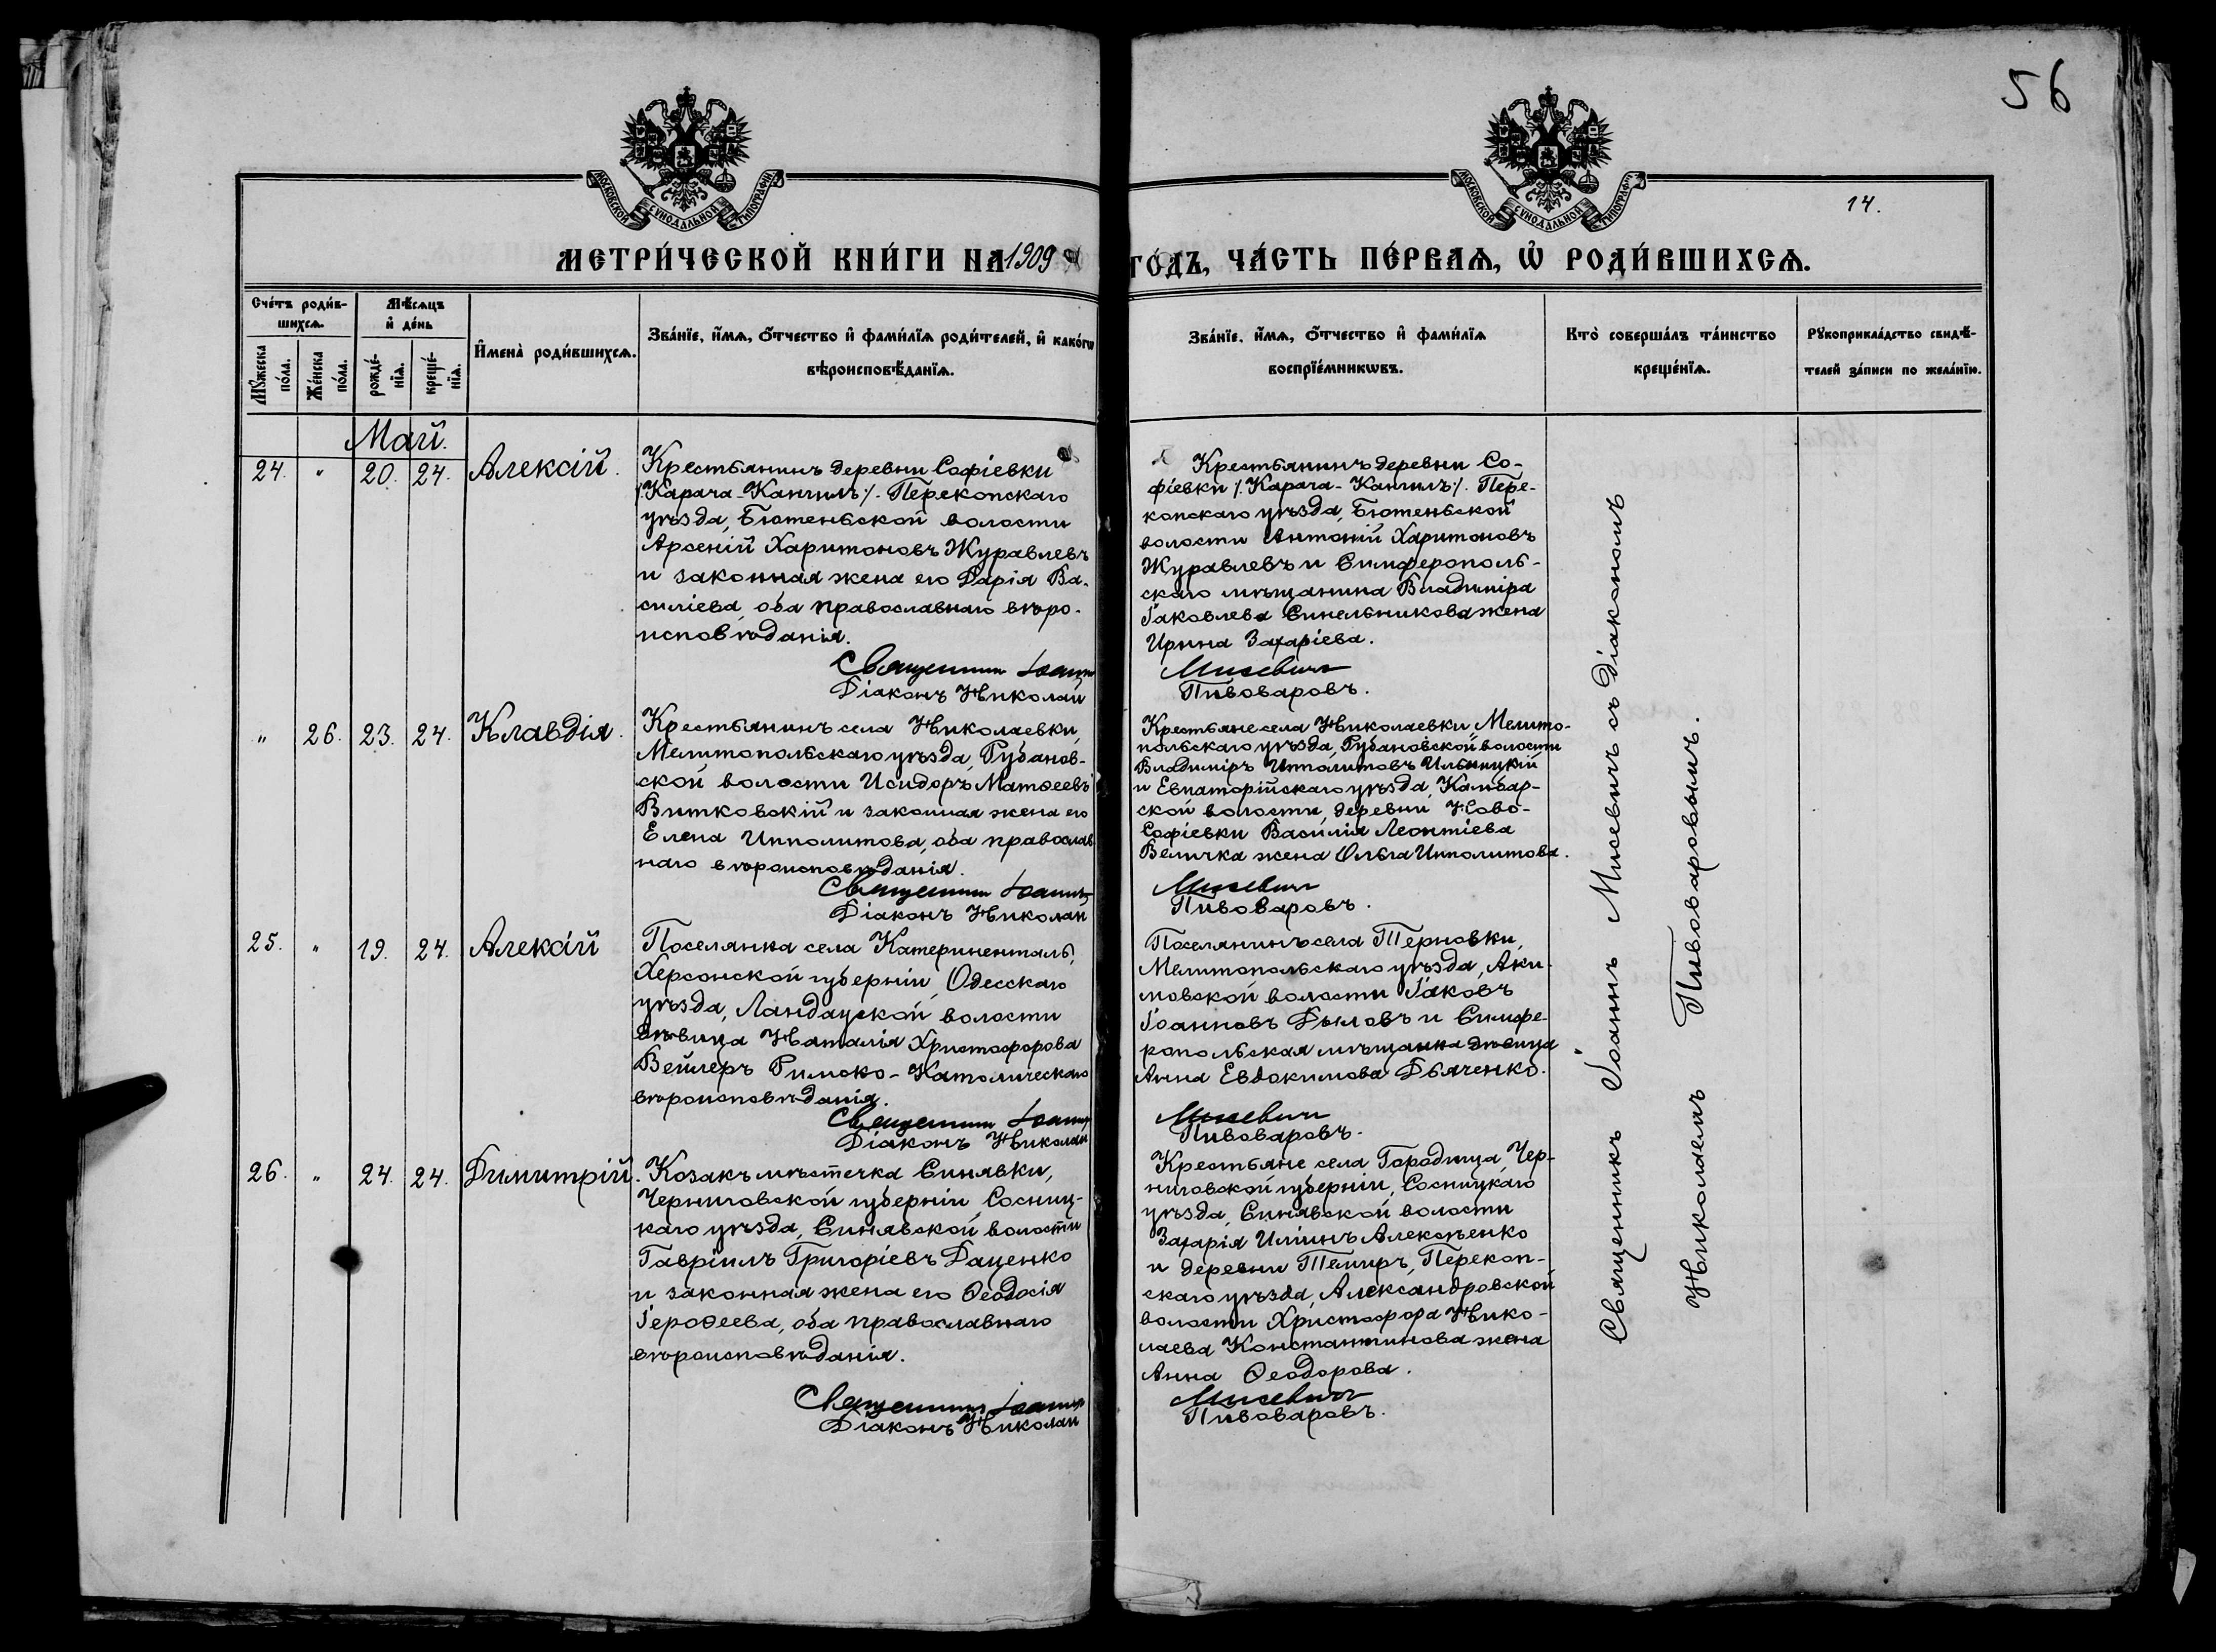 56
14.
МОСКОВСКОЙ СУНОДАЛЬНОЙ ТИПОГРАФІИ
МОСКОВСКОЙ СУНОДАЛЬНОЙ ТИПОГРАФІИ
МЕТРИ́ЧЕСКОЙ КНИ́ГИ НА 1909 ГО́ДЪ, ЧА́СТЬ ПЕ́РВАѦ, Ѽ РОДИ́ВШИХСѦ.
Сче́тъ роди́в-
шихсѧ.
Мꙋ́жеска
по́ла.
Же́нска
по́ла.
Мѣ́сѧцъ
и҆ де́нь
рожде́-
нїѧ.
креще́-
нїѧ.
И҆мена̀ роди́вшихсѧ.
Зва́нїе, и҆́мѧ, ѻ҆́тчество и҆ фами́лїѧ роди́телей, и҆ како́гѡ
вѣроисповѣ́данїѧ.
Зва́нїе, и҆́мѧ, ѻ҆́тчество и҆ фами́лїѧ
воспрїе́мникѡвъ.
Кто̀ соверша́лъ та́инство
креще́нїѧ.
Рꙋкоприкла́дство свидѣ́-
телей за́писи по жела́нїю.
Май.
24. " 20. 24. Алексій.
Крестьянинъ деревни Софіевки
/. Карача-Кангилъ ./. Перекопскаго
уѣзда, Бютеньской волости
Арсеній Харитоновъ Журавлевъ
и законная жена его Дарія Ва-
силіева, оба православнаго вѣро-
исповѣданія.
Священникъ Іоаннъ
Діаконъ Николай
Крестьянинъ деревни Со-
фіевки /. Карача-Кангилъ ./. Пере-
копскаго уѣзда, Бютеньской
волости Антоній Харитоновъ
Журавлевъ и Симферополь-
скаго мѣщанина Владиміра
Іаковлева Синельникова жена
Ирина Захаріева.
Мисевичъ
Пивоваровъ.
" 26. 23. 24. Клавдія.
Крестьянинъ села Николаевки,
Мелитопольскаго уѣзда, Рубанов-
ской волости Исидоръ Матѳеевъ
Витковскій и законная жена его
Елена Ипполитова, оба православ
наго вѣроисповѣданія.
Священникъ Іоаннъ
Діаконъ Николай
Крестьяне села Николаевки, Мелито-
польскаго уѣзда, Рубановской волости
Владиміръ Ипполитовъ Ильницкій
и Евпаторійскаго уѣзда, Камбар-
ской волости, деревни Ново-
Софіевки Василія Леонтіева
Величка жена Ольга Ипполитова.
Мисевичъ
Пивоваровъ.
25. " 19. 24. Алексій
Поселянка села Катериненталь,
Херсонской губерніи, Одесскаго
уѣзда, Ландауской волости
дѣвица Наталія Христофорова
Вейлеръ Римско-Католическаго
вѣроисповѣданія.
Священникъ Іоаннъ
Діаконъ Николай
Поселянинъ села Терновки,
Мелитопольскаго уѣзда, Аки-
мовской волости Іаковъ
Іоанновъ Дыловъ и Симфе-
ропольская мѣщанка дѣвица
Анна Евдокимова Дьяченко.
Мисевичъ
Пивоваровъ.
26. " 24. 24. Димитрій.
Козакъ мѣстечка Синявки,
Черниговской губерніи, Сосниц-
каго уѣзда, Синявской волости
Гавріилъ Григоріевъ Даценко
и законная жена его Ѳеодосія
Іероѳеева, оба православнаго
вѣроисповѣданія.
Священникъ Іоаннъ
Діаконъ Николай
Крестьяне села Городища, Чер-
ниговской губерніи, Сосницкаго
уѣзда, Синявской волости
Захарія Иліинъ Алексѣенко
и деревни Темиръ, Перекоп-
скаго уѣзда, Александровской
волости Христофора Нико-
лаева Константинова жена
Анна Ѳеодорова.
Мисевичъ
Пивоваровъ.
Священникъ Іоаннъ Мисевичъ съ Діакономъ
Николаемъ Пивоваровымъ.